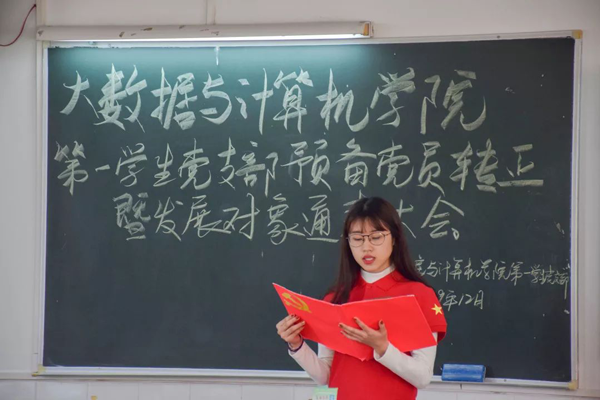 大数据与计算机学院
第一学生党支部预备党员转正
暨发展对象通 大会。
与计算机学院第一学生支部
9年12月